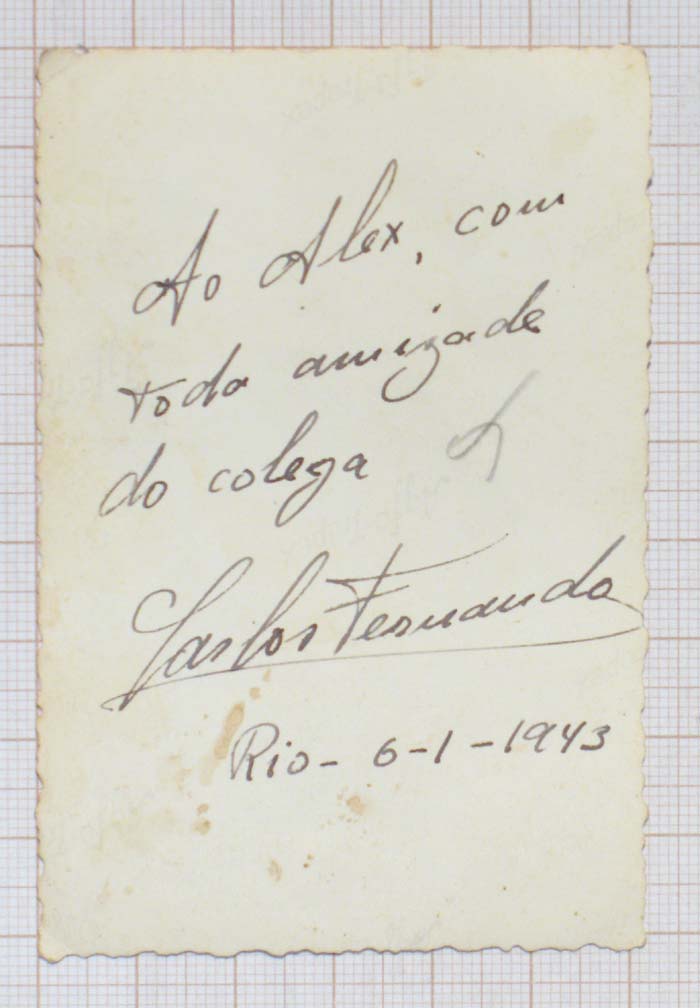 Ao Alex, com
toda amizade
do colega
Carlos Fernando
Rio - 6-1-1943